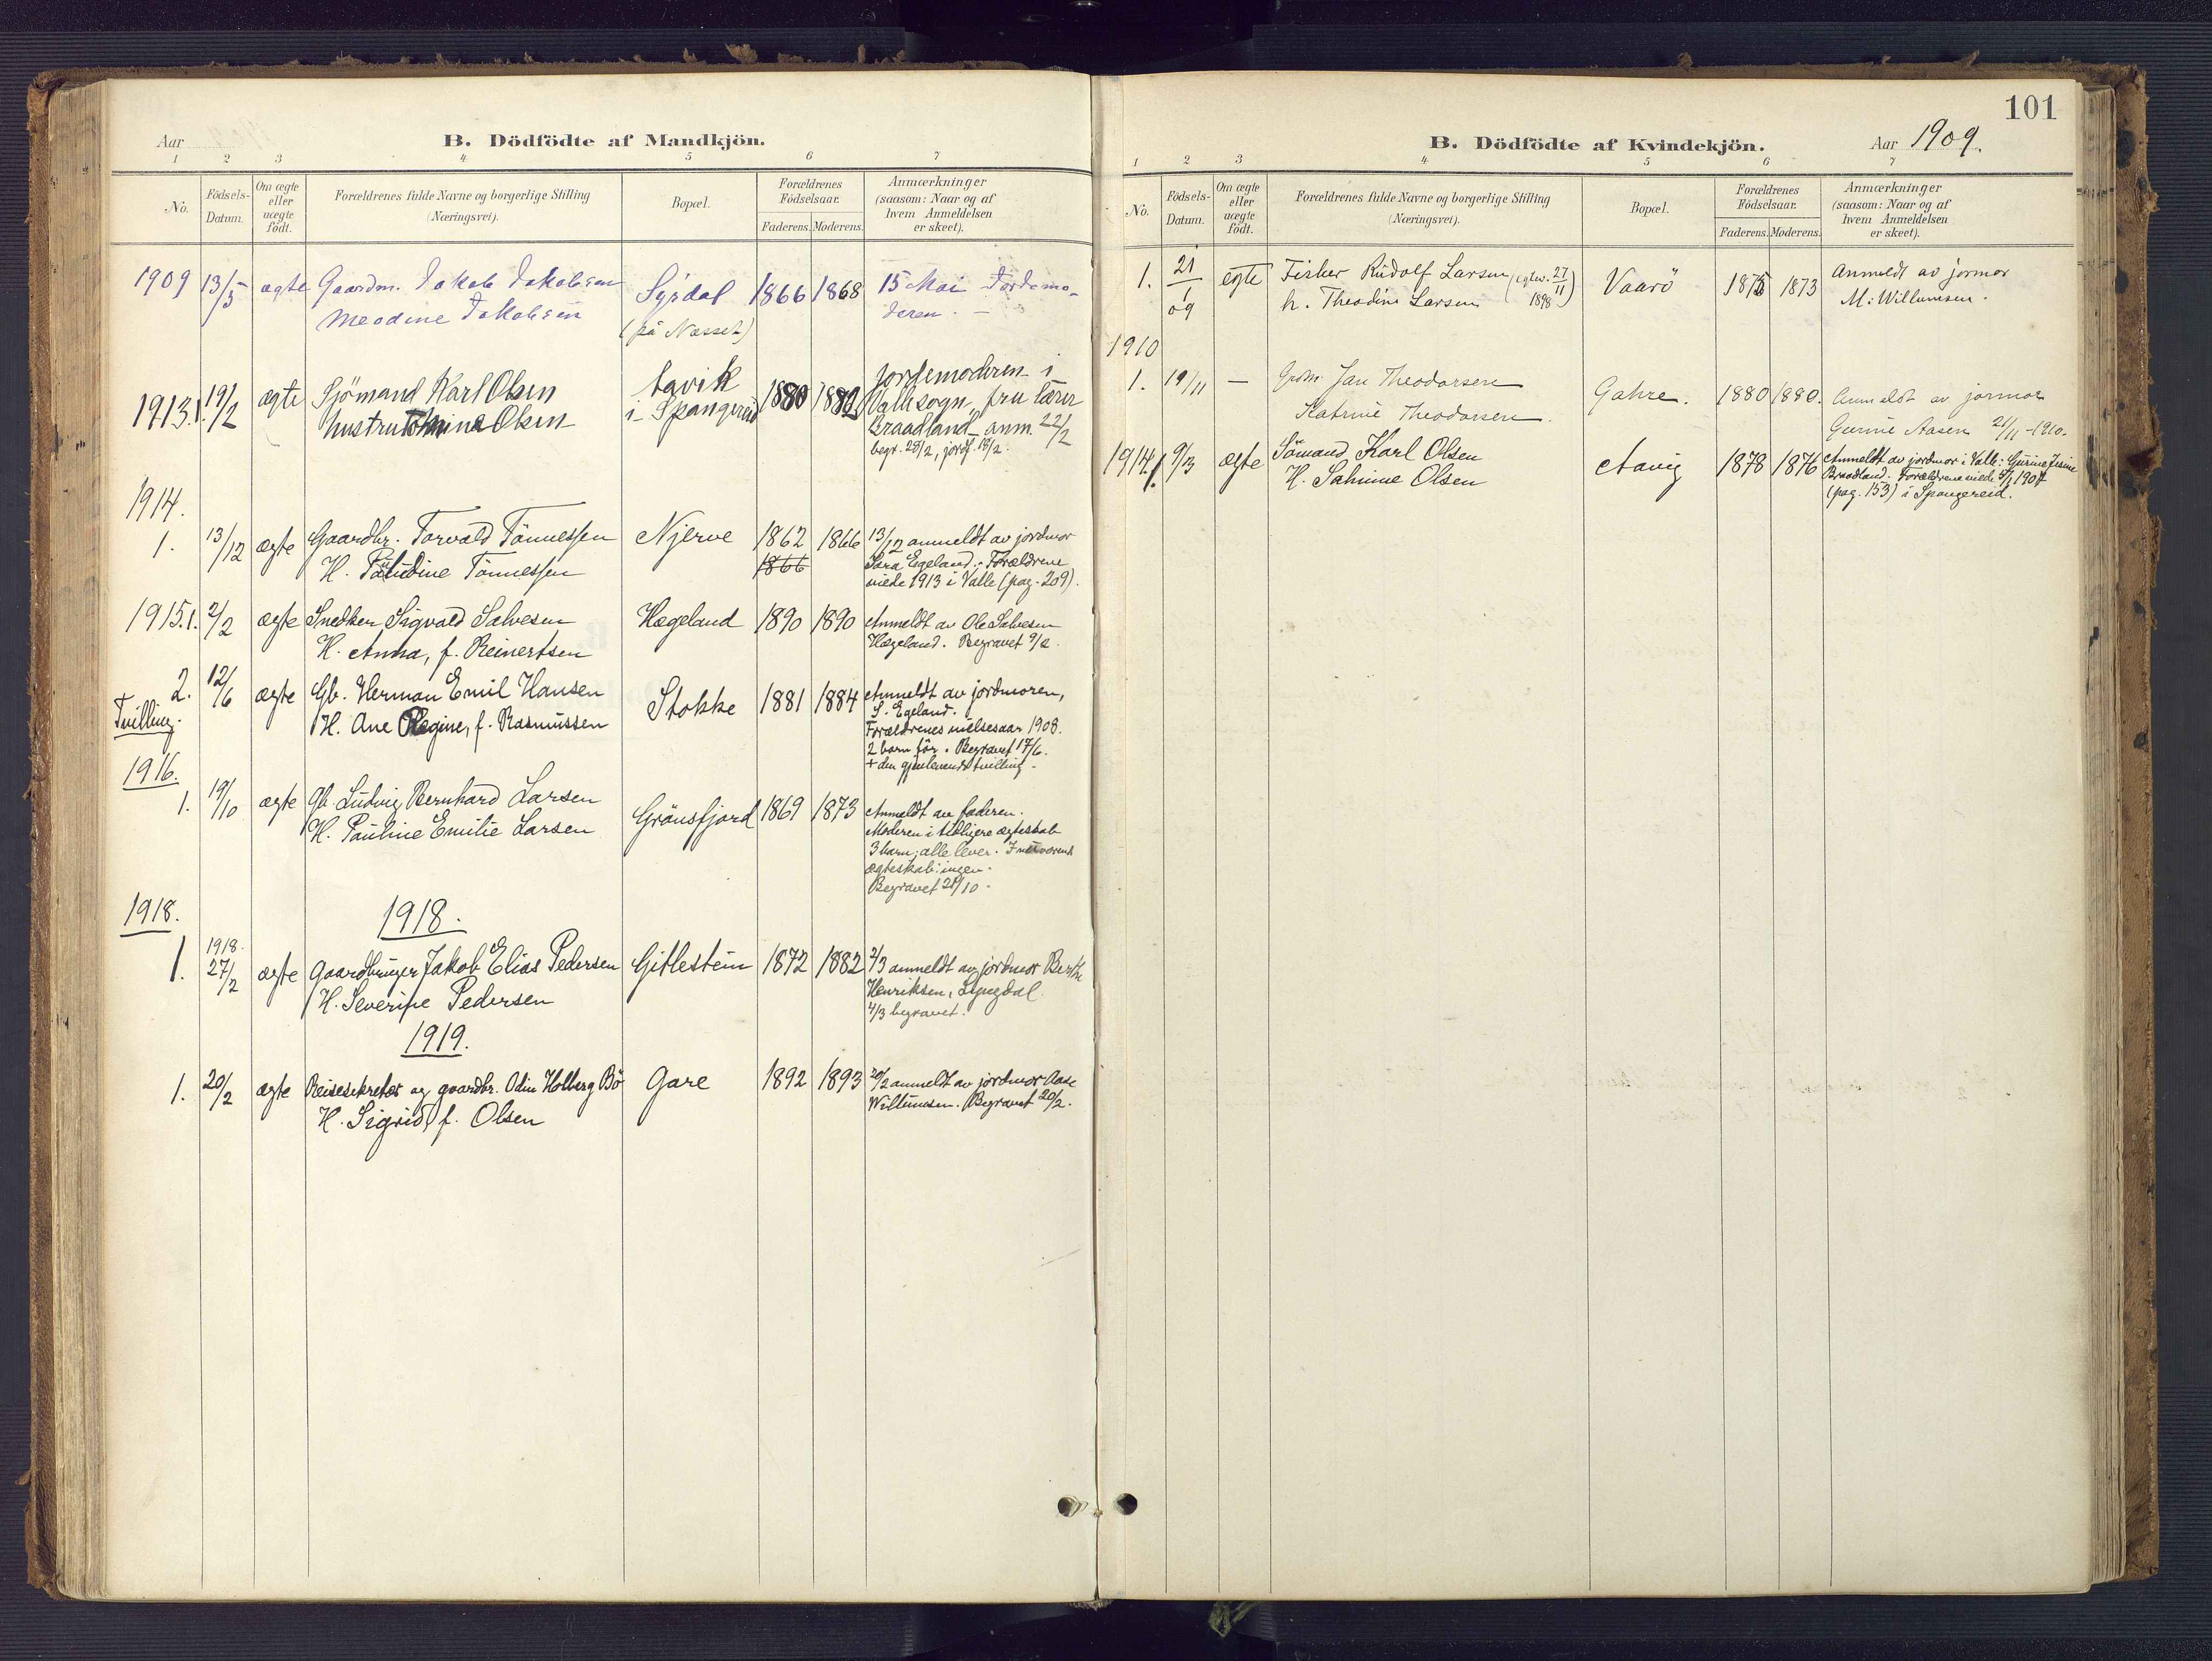 Aar
B. Dödfödte af Mandkjön.
1 2 3 4 5 6 7
No.
Födsels-Datum.
Om ægte eller uægte födt.
Forældrenes fulde Navne og borgerlige Stilling
(Næringsvei).
Bopæl.
Forældrenes Födselsaar.
Faderens. Moderens.
Anmærkninger
(saasom: Naar og af
hvem Anmeldelsen
er skeet).
1909 13/5 ægte Gaardm. Jakob Jakobsen Syrdal 1866 1868 15 Mai Jordemo-
Meodine Jakobsen (på Nasset) deren. —
1913. 1. 19/2 ægte Sjömand Karl Olsen Aavik 1880 1882 Jordemoderen i
hustru Olsen i Spangereid Valle sogn, fru lærer
Braadland anm. 22/2
begr. 25/2, jordf. 18/2.
1914.
1. 13/12 ægte Gaardbr. Torvald Tönnessen Njerve 1862 1866 13/12 anmeldt av jordmor
H. Paludine Tönnessen 1866 Sara Egeland. Forældrene
viede 1913 i Valle (pag. 209).
1915. 1. 2/2 ægte Snedker Sigvald Salvesen Hægeland 1890 1890 Anmeldt av Ole Salvesen
H. Anna, f. Reinertsen Hægeland. Begravet 9/2.
2. 12/6 ægte Gb. Herman Emil Hansen Stokke 1881 1884 Anmeldt av jordmoren,
Tvilling. H. Ane Regine, f. Rasmussen S. Egeland.
Forældrenes vielsesaar 1908.
2 barn för. Begravet 17/6.
+ den gjenlevende tvilling.
1916.
1. 19/10 ægte Gb. Ludvig Bernhard Larsen Grönsfjord 1869 1873 Anmeldt av faderen.
H. Pauline Emilie Larsen Moderen i tidligere ægteskab
3 barn; alle lever. I nuværende
ægteskab: ingen.
Begravet 21/10.
1918. 1918.
1. 1918. 27/2 ægte Gaardbruger Jakob Elias Pedersen Gitlestein 1872 1882 2/3 anmeldt av jordmor Berthe
H. Severine Pedersen Henriksen, Lyngdal.
4/3 begravet.
1919.
1. 20/2 ægte Reisesekretær og gaardbr. Odin Holberg Bö Gare 1892 1893 20/2 anmeldt av jordmor Aase
H. Sigrid, f. Olsen Willumsen. Begravet 20/2.
101
B. Dödfödte af Kvindekjön.
Aar 1909.
1 2 3 4 5 6 7
No.
Födsels-Datum.
Om ægte eller uægte födt.
Forældrenes fulde Navne og borgerlige Stilling
(Næringsvei).
Bopæl.
Forældrenes Födselsaar.
Faderens. Moderens.
Anmærkninger
(saasom: Naar og af
hvem Anmeldelsen
er skeet).
1. 21/1 09 egte Fisker Rudolf Larsen (egtev. 27/11 1898) Vaarö 1875 1873 Anmeldt av jormor
h. Theodine Larsen M. Willumsen.
1910
1. 19/11 — Grdm. Jan Theodorsen Gahre. 1880 1880. Anmeldt av jormor
Katrine Theodorsen. Gurine Aasen 21/11 - 1910.
1914. 1. 9/3 ægte Sömand Karl Olsen Aavig 1878 1876 Anmeldt av jordmor i Valle: Gurine Jesine
H. Salmine Olsen Braadland. Forældrene viede 1907
(pag. 153) i Spangereid.